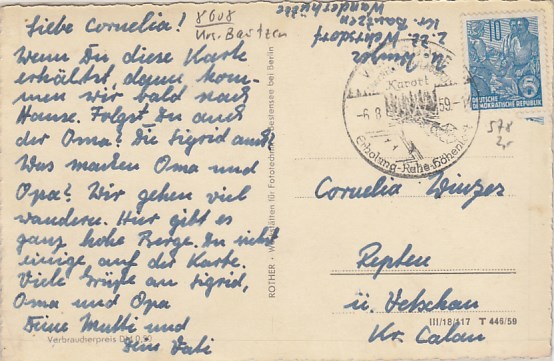 Liebe Cornelia!
Wenn Du diese Karte
erhältst, dann kom-
men wir bald nach
Hause. Folgst Du auch
der Oma? Die Sigrid auch?
Was machen Oma und
Opa? Wir gehen viel
wandern. Hier gibt es
ganz hohe Berge. Du siehst
einige auf der Karte.
Viele Grüße an Sigrid,
Oma und Opa
Deine Mutti und
Dein Vati
Verbraucherpreis DM 0,20
8608
Krs. Bautzen
ROTHER • Werkstätten für Fototechnik Bestensee bei Berlin
z. Zt. Wehrsdorf
Kr. Bautzen
Wanderhütte
Kurort
-6.8
59.-
Erholung-Ruhe-Höhenluft
10
5
DEUTSCHE
DEMOKRATISCHE REPUBLIK
578
Cornelia Winzer
Repten
ü. Vetschau
Kr. Calau
III/18/117 T 446/59